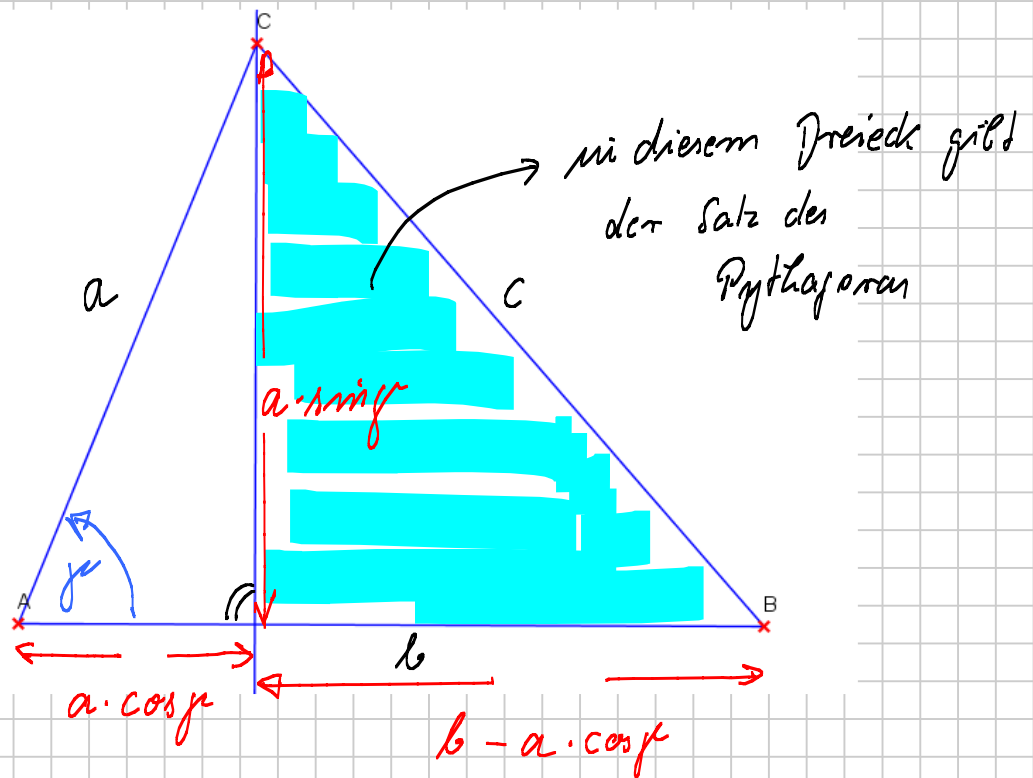 C
in diesem Dreieck gilt
der Satz des
Pythagoras
a
c
a · sin γ
γ
A
B
b
a · cos γ
b - a · cos γ